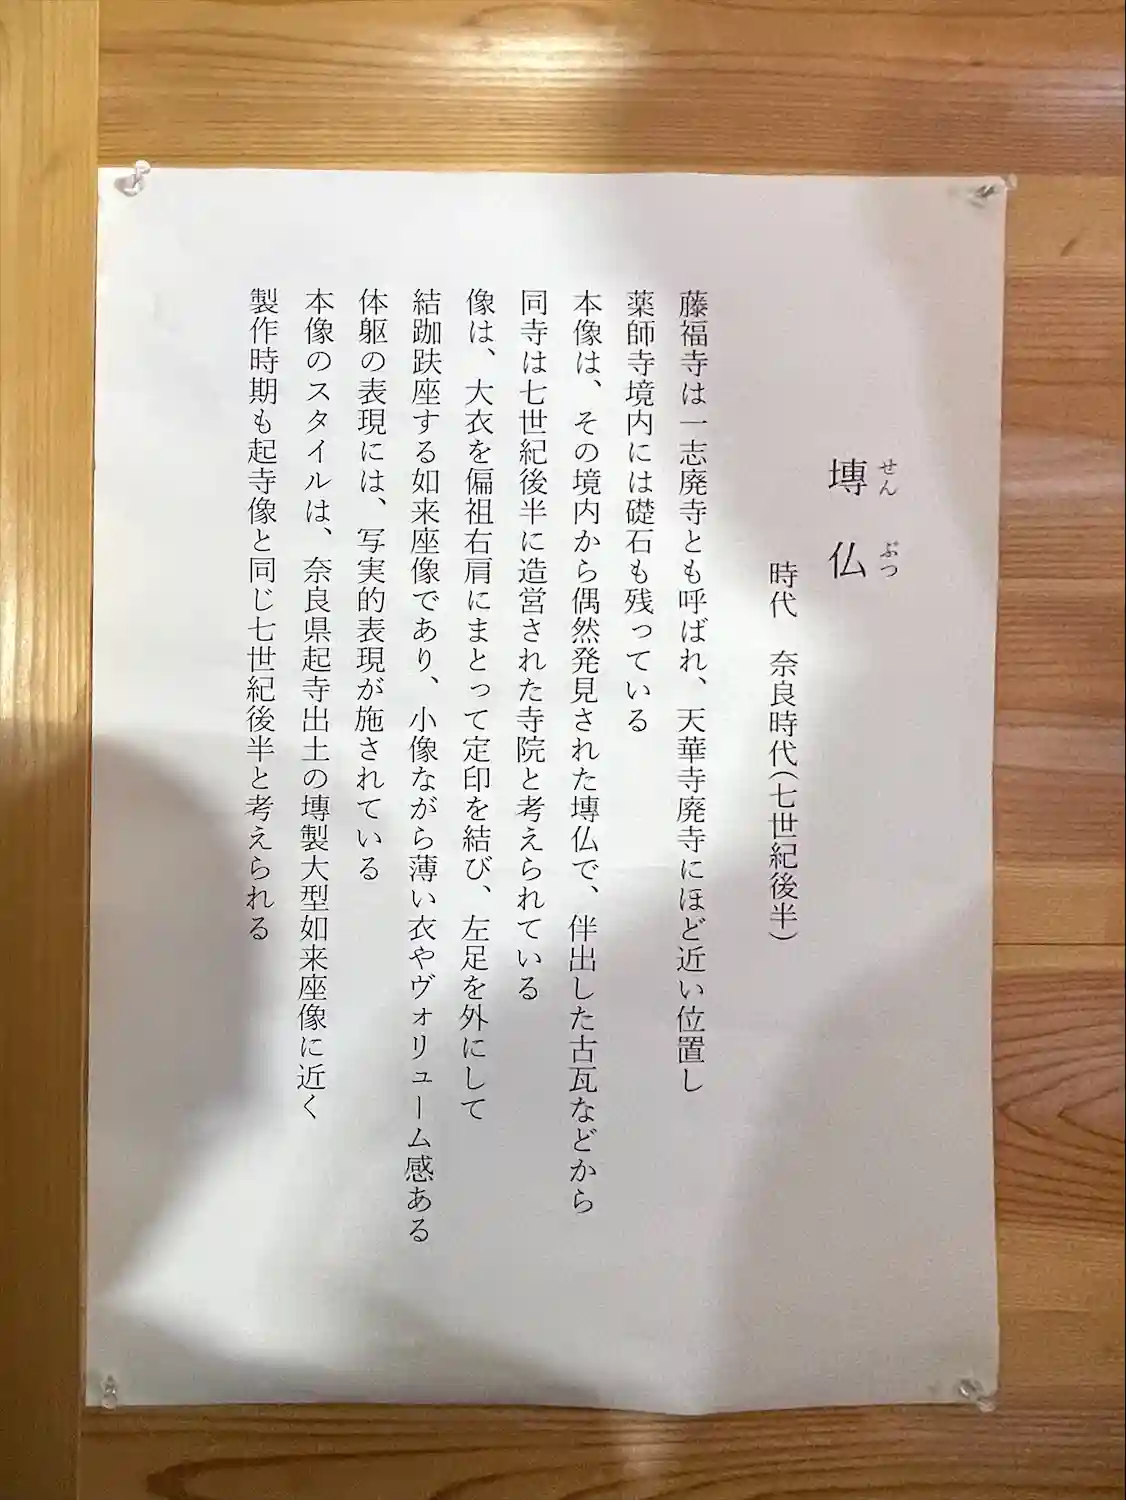 せん ぶつ
塼仏
時代 奈良時代(七世紀後半)
藤福寺は一志廃寺とも呼ばれ、天華寺廃寺にほど近い位置し
薬師寺境内には礎石も残っている
本像は、その境内から偶然発見された塼仏で、伴出した古瓦などから
同寺は七世紀後半に造営された寺院と考えられている
像は、大衣を偏祖右肩にまとって定印を結び、左足を外にして
結跏趺座する如来座像であり、小像ながら薄い衣やヴォリューム感ある
体躯の表現には、写実的表現が施されている
本像のスタイルは、奈良県起寺出土の塼製大型如来座像に近く
製作時期も起寺像と同じ七世紀後半と考えられる